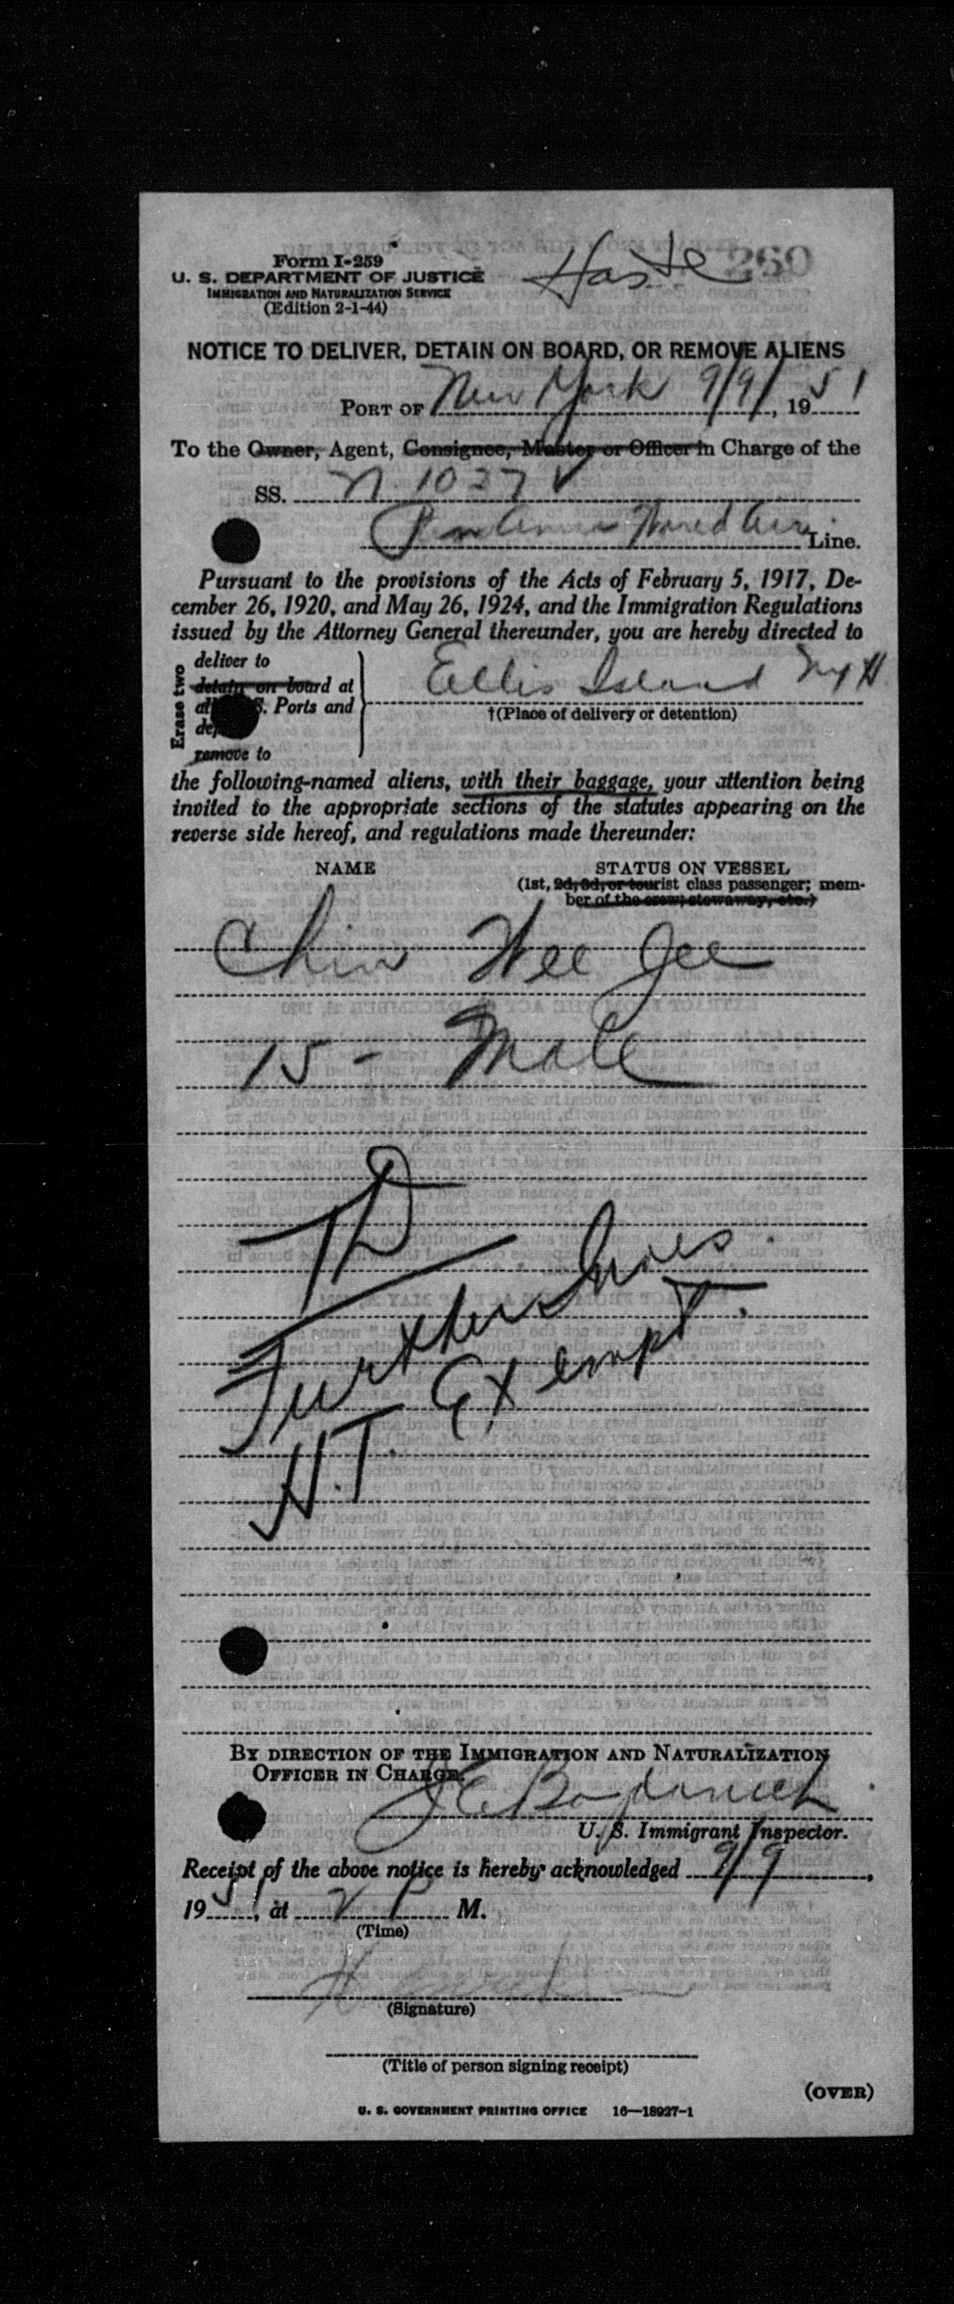 Form I-259
U. S. DEPARTMENT OF JUSTICE
IMMIGRATION AND NATURALIZATION SERVICE
(Edition 2-1-44)
Haste
260
NOTICE TO DELIVER, DETAIN ON BOARD, OR REMOVE ALIENS
PORT OF New York 9/9/, 1951
To the Owner, Agent, Consignee, Master or Officer in Charge of the
SS. N 1037 V
Pan Amer World Air Line.
Pursuant to the provisions of the Acts of February 5, 1917, De-
cember 26, 1920, and May 26, 1924, and the Immigration Regulations
issued by the Attorney General thereunder, you are hereby directed to
Erase two
deliver to
detain on board at
all U. S. Ports and
remove to
Ellis Island NYH
†(Place of delivery or detention)
the following-named aliens, with their baggage, your attention being
invited to the appropriate sections of the statutes appearing on the
reverse side hereof, and regulations made thereunder:
NAME STATUS ON VESSEL
(1st, 2d, 3d, or tourist class passenger; mem-
ber of the crew; stowaway, etc.)
Chin Wee Jee
15 - Male
TD
Further Inves.
H.T. Exempt.
BY DIRECTION OF THE IMMIGRATION AND NATURALIZATION
OFFICER IN CHARGE.
U. S. Immigrant Inspector.
Receipt of the above notice is hereby acknowledged 9/9,
1951, at 2 P M.
(Time)
(Signature)
(Title of person signing receipt)
(OVER)
U. S. GOVERNMENT PRINTING OFFICE 16—18927-1